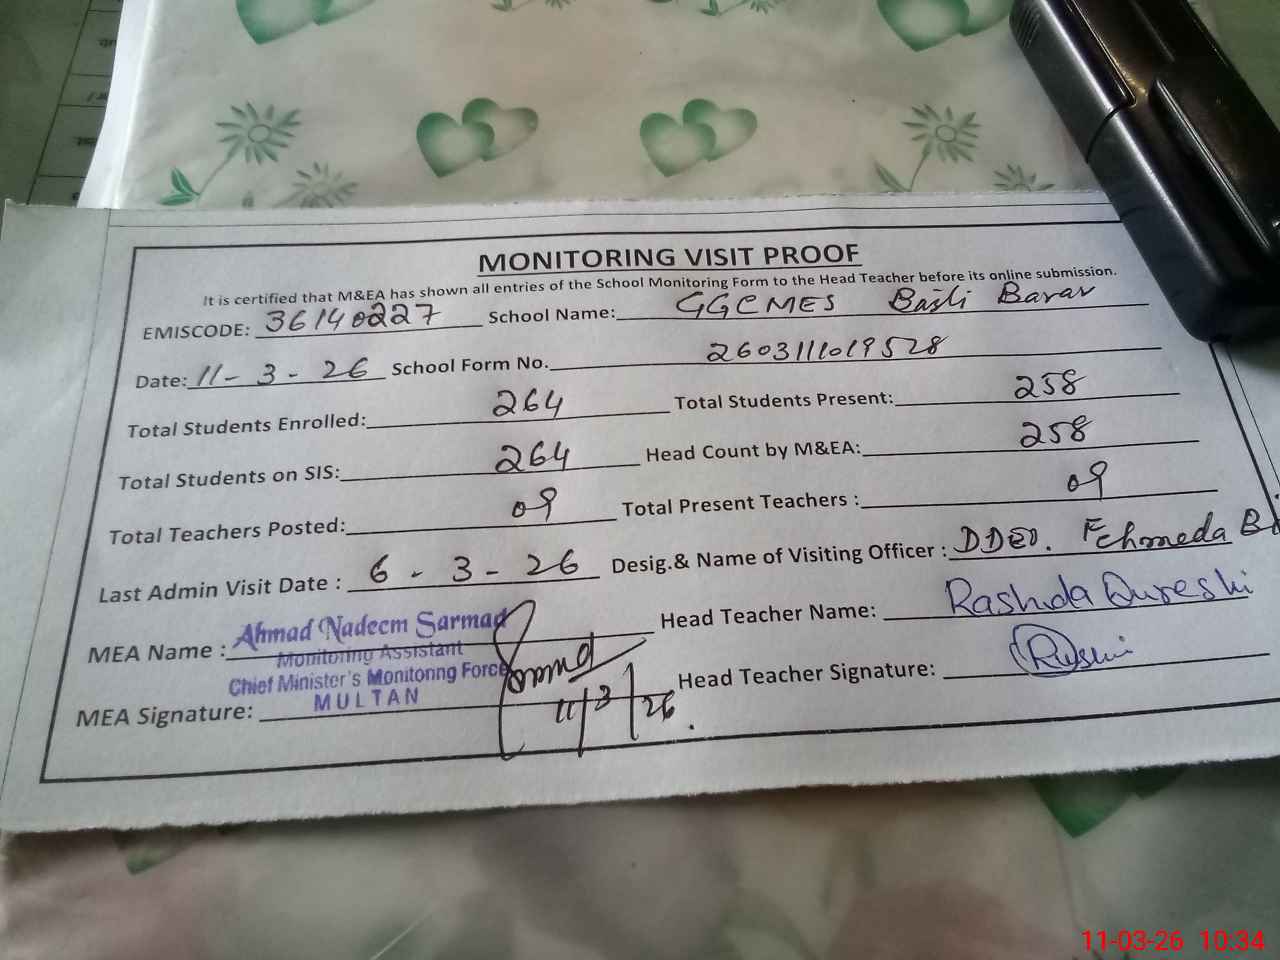 MONITORING VISIT PROOF
It is certified that M&EA has shown all entries of the School Monitoring Form to the Head Teacher before its online submission.
EMISCODE: 36140227 School Name: GGCMES Basti Barar
Date: 11-3-26 School Form No. 2603111019528
Total Students Enrolled: 264 Total Students Present: 258
Total Students on SIS: 264 Head Count by M&EA: 258
Total Teachers Posted: 09 Total Present Teachers : 09
Last Admin Visit Date : 6-3-26 Desig.& Name of Visiting Officer : DDEO. Fehmeda
MEA Name : Ahmad Nadeem Sarmad Head Teacher Name: Rashda Qureshi
Monitoring Assistant
Chief Minister's Monitoring Force
MULTAN
MEA Signature: 11/3/26. Head Teacher Signature:
11-03-26 10:34